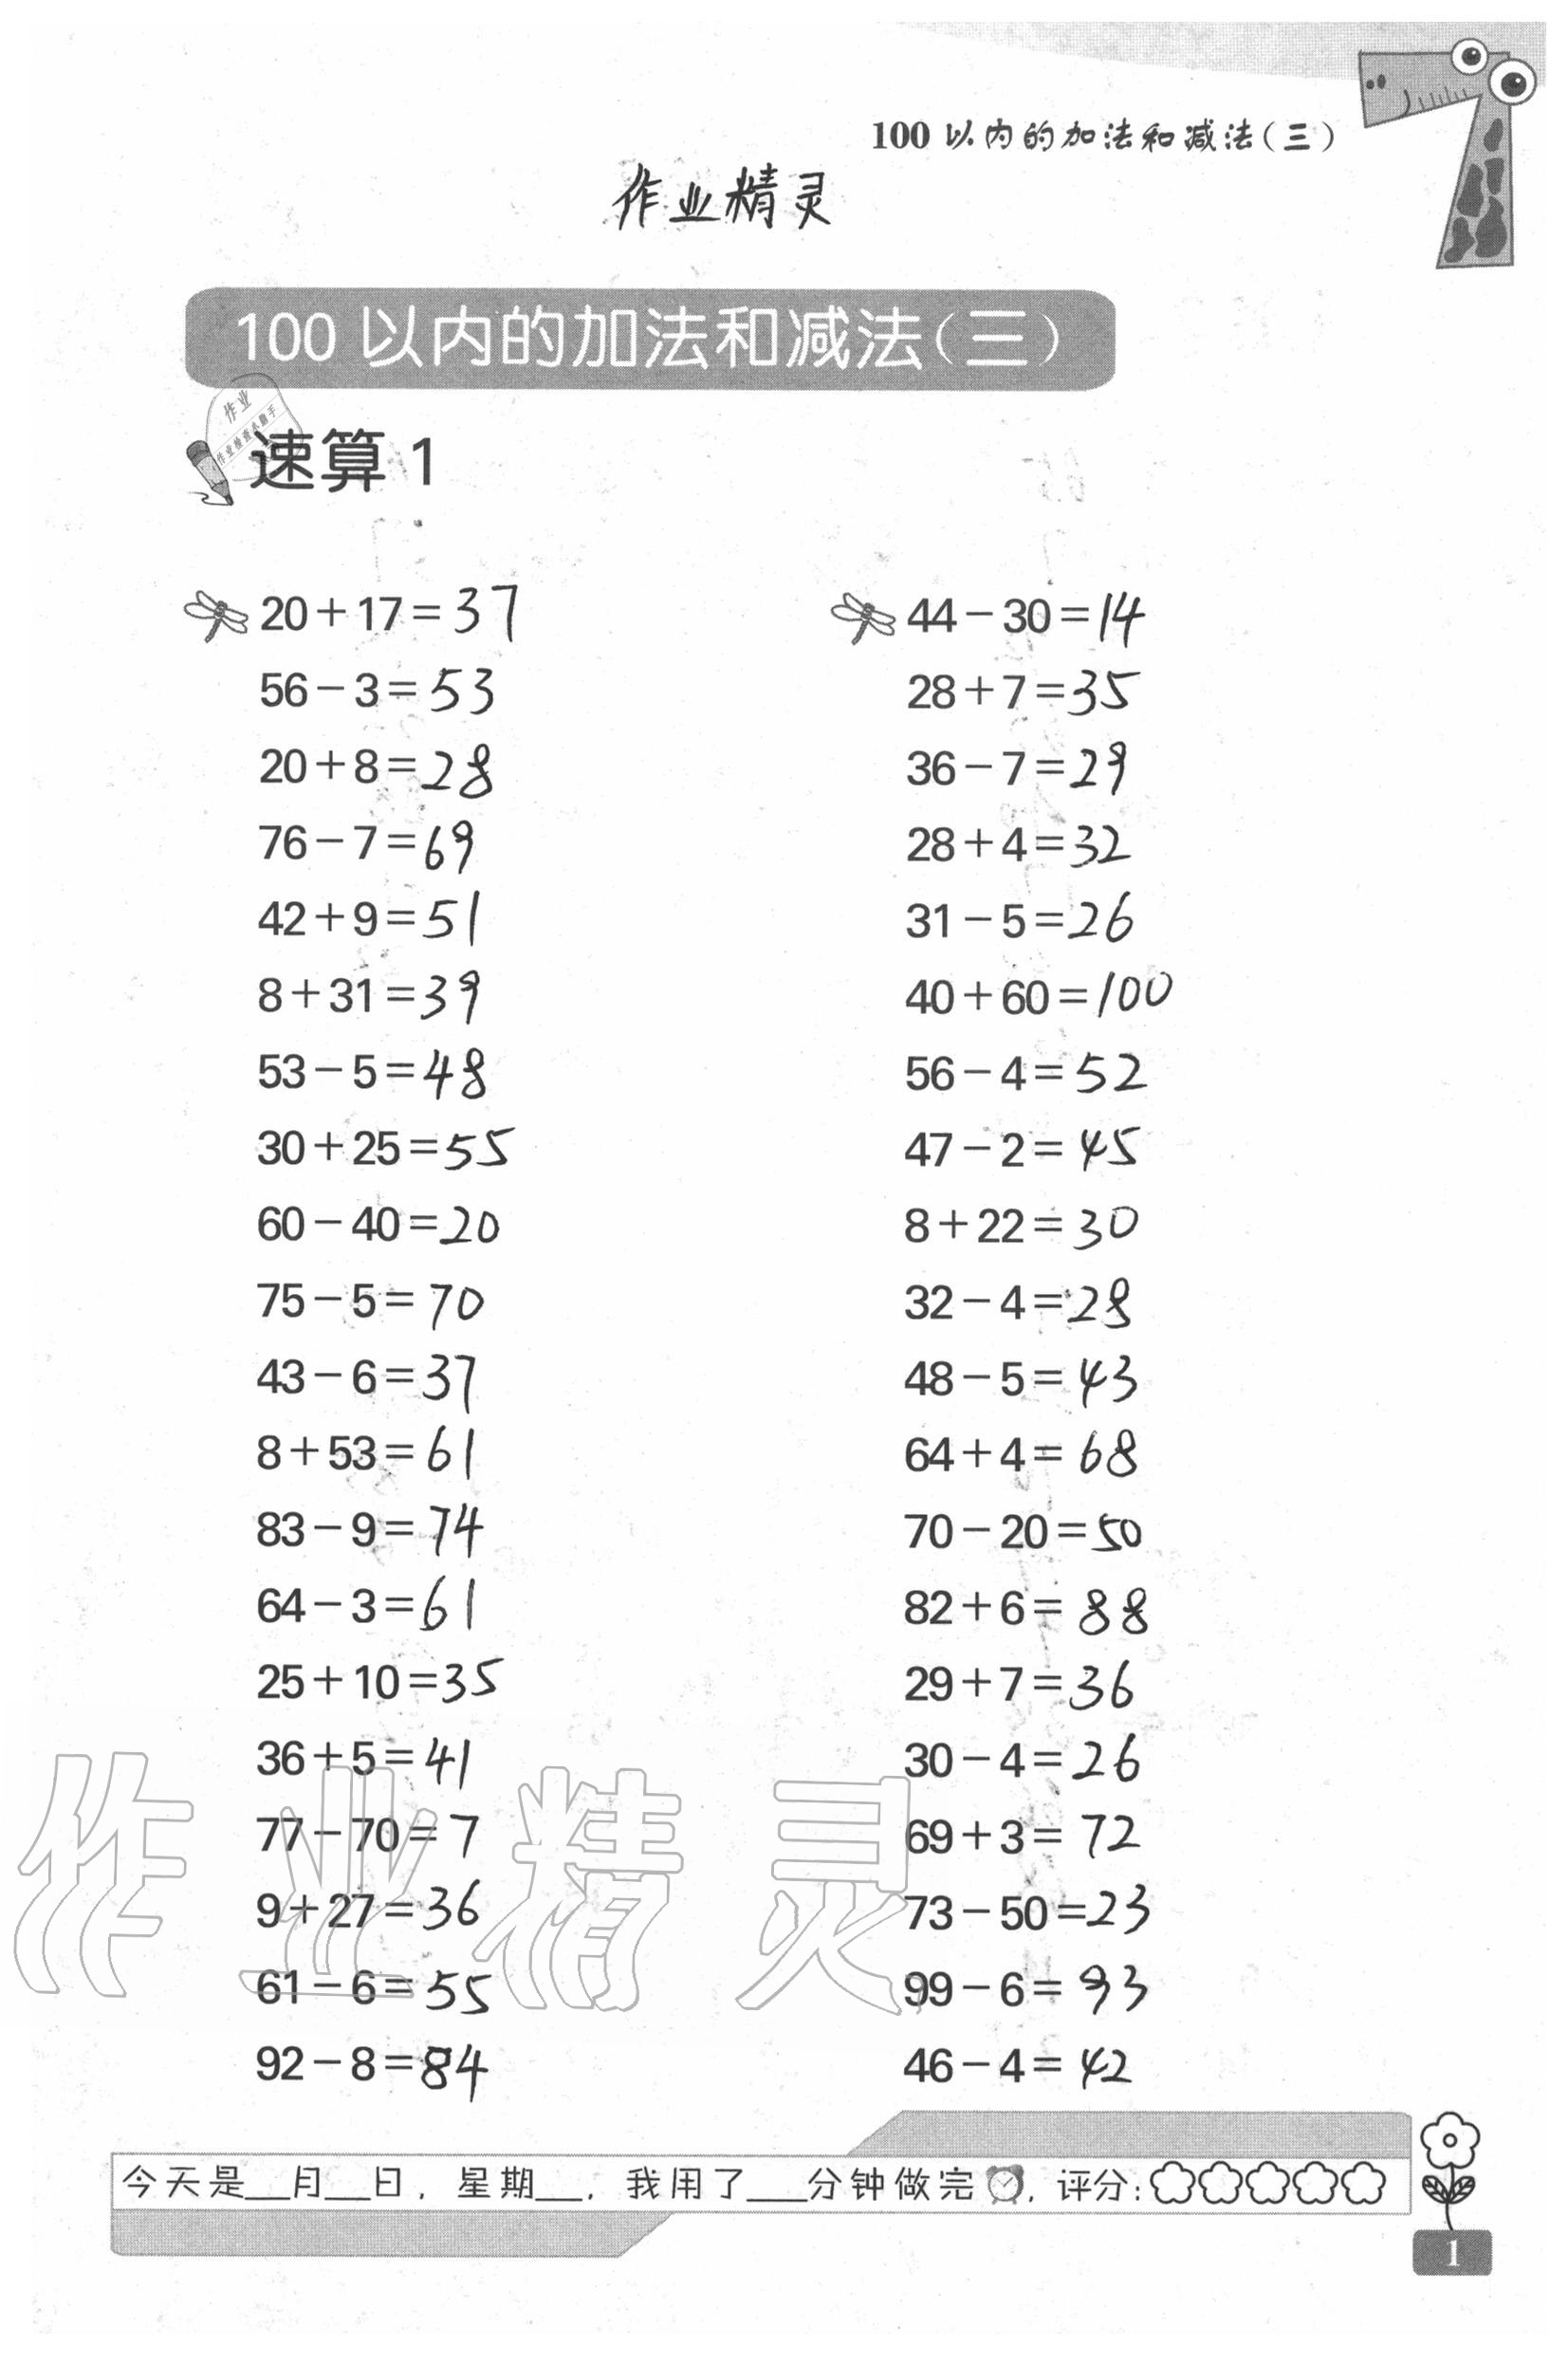 100 以内的加法和减法(三)
作业精灵
100 以内的加法和减法(三)
作业
作业检查小助手
速算 1
20+17=37
56-3=53
20+8=28
76-7=69
42+9=51
8+31=39
53-5=48
30+25=55
60-40=20
75-5=70
43-6=37
8+53=61
83-9=74
64-3=61
25+10=35
36+5=41
77-70=7
9+27=36
61-6=55
92-8=84
44-30=14
28+7=35
36-7=29
28+4=32
31-5=26
40+60=100
56-4=52
47-2=45
8+22=30
32-4=28
48-5=43
64+4=68
70-20=50
82+6=88
29+7=36
30-4=26
69+3=72
73-50=23
99-6=93
46-4=42
作业精灵
今天是__月__日，星期__，我用了___分钟做完，评分：
1